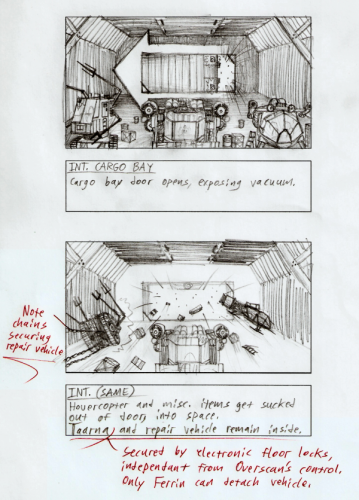 INT. CARGO BAY
Cargo bay door opens, exposing vacuum.
Note
chains
securing
repair vehicle
INT. (SAME)
Hovorcopter and misc. items get sucked
out of door, into space.
Taarna, and repair vehicle remain inside.
Secured by electronic floor locks,
independant from Overscan's control.
Only Ferrin can detach vehicle.